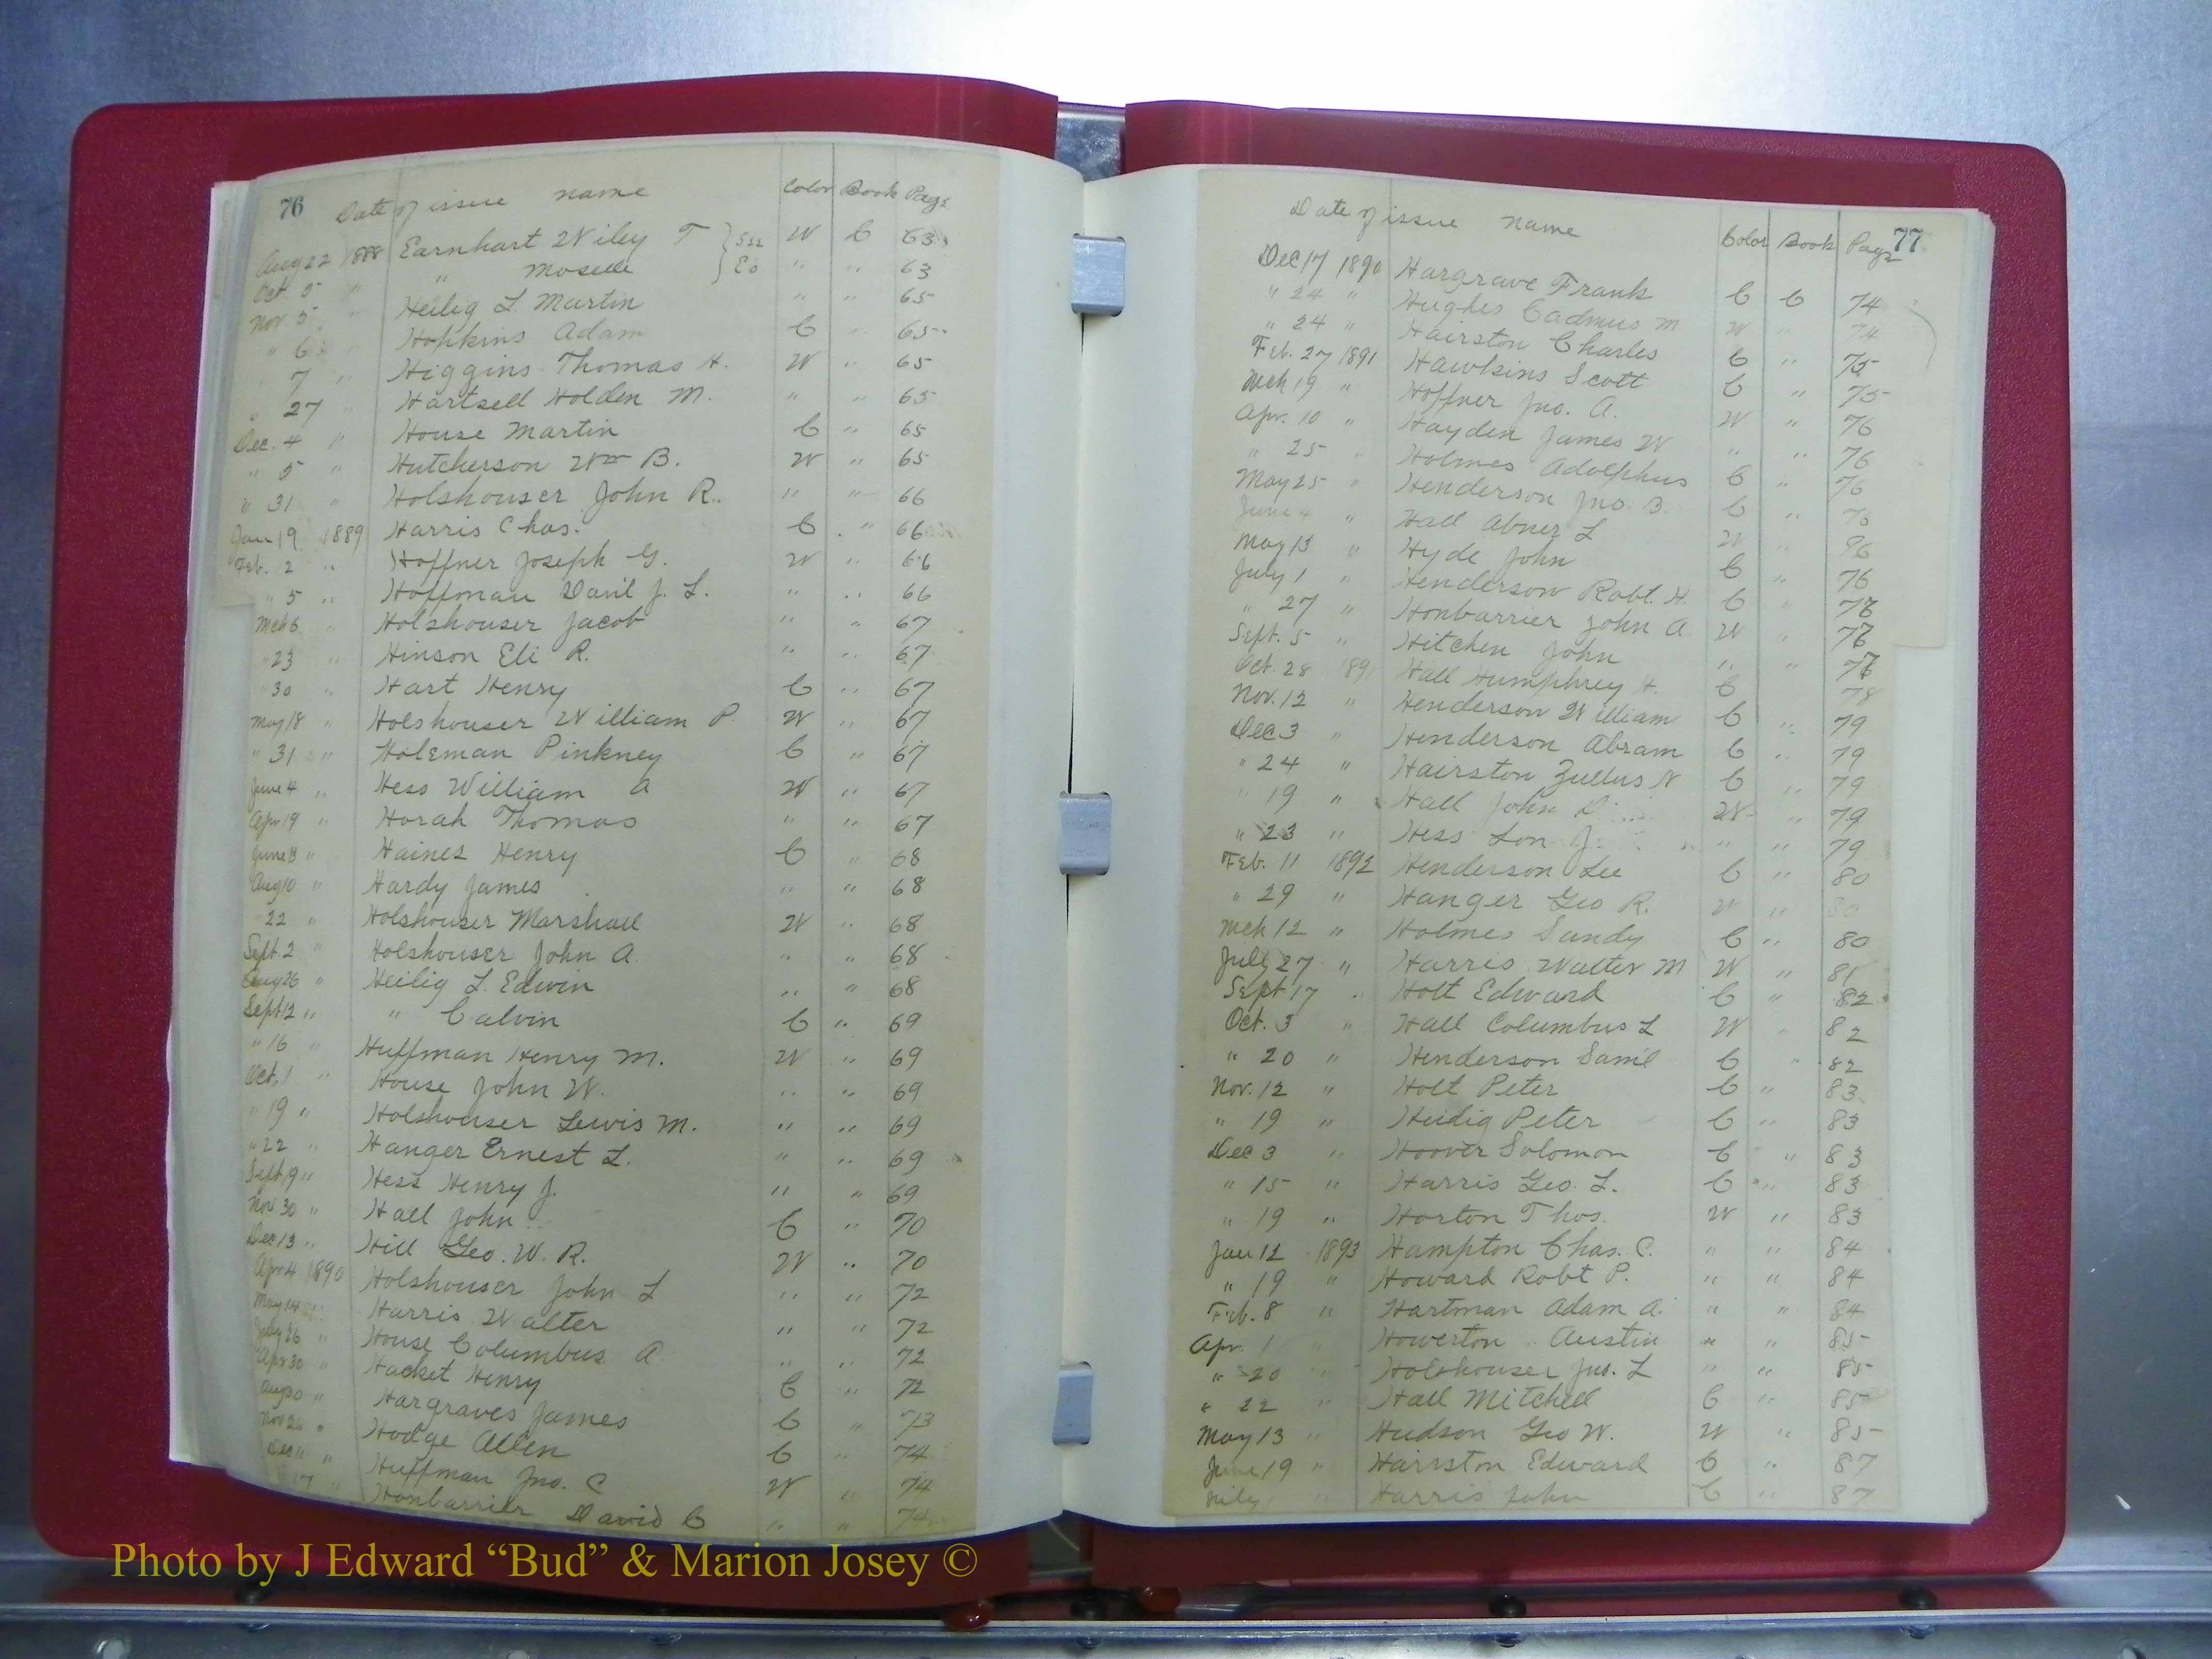 76 Date of issue name Color Book Page
Aug 22 1888 Earnhart Wiley T } See W C 63
Oct 5 " " Moselle } Es " " 63
Nov 5 " Heilig L. Martin " " 65
" 6 " Hopkins Adam C " 65
" 7 " Higgins Thomas H. W " 65
" 27 " Hartsell Holden M. " " 65
Dec. 4 " House Martin C " 65
" 5 " Hutcherson Wm B. W " 65
" 31 " Holshouser John R. " " 66
Jan 19 1889 Harris Chas. C " 66
Feb. 2 " Hoffner Joseph G. W " 66
" 5 " Hoffman Danil J. L. " " 66
Mch 6 " Holshouser Jacob " " 67
" 23 " Hinson Eli R. " " 67
" 30 " Hart Henry C " 67
May 18 " Holshouser William P. W " 67
" 31 " Holeman Pinkney C " 67
June 4 " Hess William A W " 67
Apr 19 " Horah Thomas " " 67
June " Haines Henry C " 68
Aug 10 " Hardy James " " 68
" 22 " Holshouser Marshall W " 68
Sept. 2 " Holshouser John A. " " 68
Aug 26 " Heilig L. Edwin " " 68
Sept 12 " " Calvin C " 69
" 16 " Huffman Henry M. W " 69
Oct. 1 " House John W. " " 69
" 19 " Holshouser Lewis M. " " 69
" 22 " Hanger Ernest L. " " 69
Sept 19 " Hess Henry J. " " 69
Nov 30 " Hall John C " 70
Dec 13 " Hill Geo. W. R. W " 70
Apr 4 1890 Holshouser John L " " 72
May 14 " Harris Walter " " 72
July 26 " House Columbus A " " 72
Apr 30 " Hacket Henry C " 72
Aug 30 " Hargraves James C " 73
Nov 26 " Hodge Allen C " 74
Dec 11 " Huffman Jno. C W " 74
" 17 " Honbarrier David C " " 74
Date of issue name Color Book Page 77
Dec 17 1890 Hargrave Frank C C 74
" 24 " Hughes Cadmus M W " 74
" 24 " Hairston Charles C " 75
Feb. 27 1891 Hawkins Scott C " 75
Mch 19 " Hoffner Jno. A. W " 76
Apr. 10 " Hayden James W " " 76
" 25 " Holmes Adolphus C " 76
May 25 " Henderson Jno. B. C "
June 4 " Hall Abner L W "
May 13 " Hyde John C " 76
July 1 " Henderson Robt. H. C " 78
" 27 " Honbarrier John A. W " 78
Sept. 5 " Hitchen John " " 78
Oct. 28 1891 Hall Humphrey H. C 78
Nov. 12 " Henderson William C " 79
Dec 3 " Henderson Abram C " 79
" 24 " Hairston Zullus N C " 79
" 19 " Hall John W " 79
" 23 " Hess Lon J. " " 79
Feb. 11 1892 Henderson Lee C " 80
" 29 " Hanger Geo R. W " 80
Mch 12 " Holmes Sandy C " 80
July 27 " Harris Walter M W " 81
Sept 17 " Holt Edward C " 82
Oct. 3 " Hall Columbus L W " 82
" 20 " Henderson Saml C " 82
Nov. 12 " Holt Peter C " 83
" 19 " Heilig Peter C " 83
Dec 3 " Hoover Solomon C " 83
" 15 " Harris Geo. L. C " 83
" 19 " Horton Thos. W " 83
Jan 12 1893 Hampton Chas. C. " " 84
" 19 " Howard Robt P. " " 84
Feb. 8 " Hartman Adam A. " " 84
Apr. 1 " Howerton Austin " " 85
" 20 " Holshouser Jno. L " " 85
" 22 " Hall Mitchell C " 85
May 13 " Hudson Geo W. W " 85
June 19 " Hairston Edward C " 87
" Harris John C " 87
Photo by J Edward “Bud” & Marion Josey ©